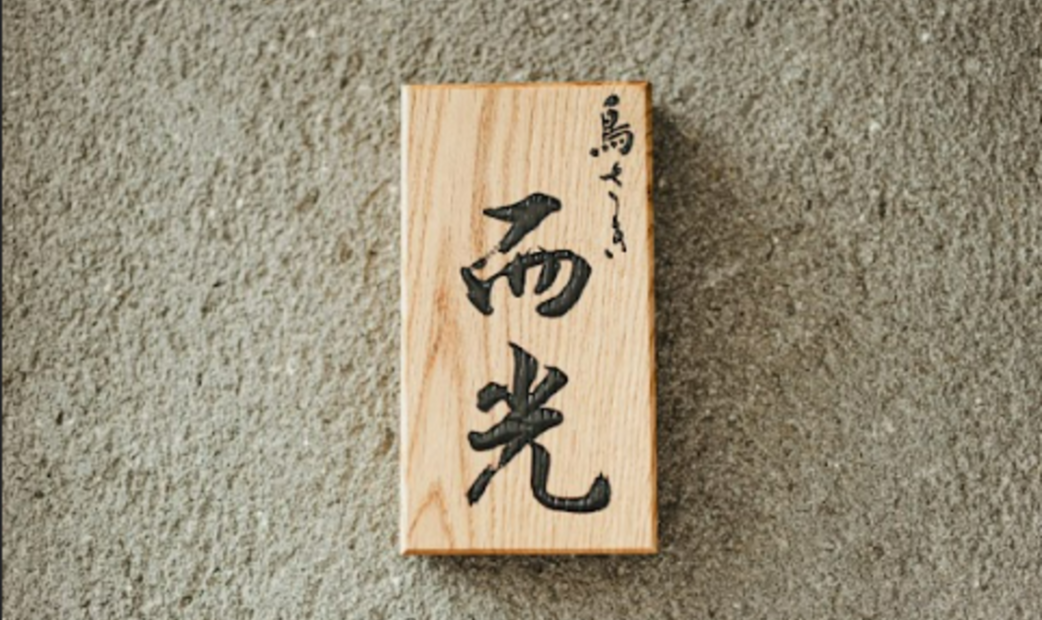 鳥さくき
而光